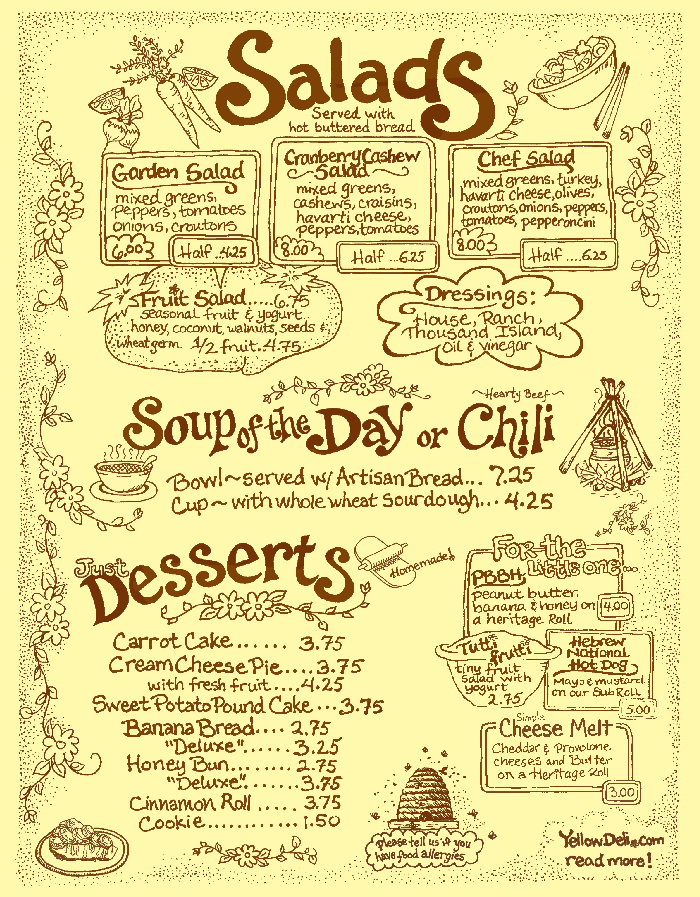 Salads
Served with
hot buttered bread
Garden Salad
mixed greens,
Peppers, tomatoes
onions, croutons
6.00
Half ..4.25
Cranberry Cashew
Salad
mixed greens,
cashews, craisins,
havarti cheese,
peppers, tomatoes
8.00
Half ....6.25
Chef Salad
mixed greens, turkey,
havarti cheese, olives,
croutons, onions, peppers,
tomatoes, pepperoncini
8.00
Half ....6.25
Fruit Salad.....6.75
seasonal fruit & yogurt
honey, coconut, walnuts, seeds &
wheatgerm 1/2 fruit..4.75
Dressings:
House, Ranch,
Thousand Island,
Oil & vinegar
~Hearty Beef~
Soup of the Day or Chili
Bowl~served w/ Artisan Bread... 7.25
Cup~ with whole wheat sourdough... 4.25
Just
Desserts
Homemade!
Carrot Cake...... 3.75
Cream Cheese Pie....3.75
with fresh fruit....4.25
Sweet Potato Pound Cake ...3.75
Banana Bread.... 2.75
"Deluxe"...... 3.25
Honey Bun........ 2.75
"Deluxe"...... 3.75
Cinnamon Roll ..... 3.75
Cookie............ 1.50
For the
Little one...
PBBH
peanut butter
banana & honey on
a heritage Roll
4.00
Tutti
frutti
tiny fruit
salad with
yogurt
2.75
Hebrew
National
Hot Dog
Mayo & mustard
on our Sub Roll
5.00
Simple
Cheese Melt
Cheddar & Provolone
cheeses and Butter
on a Heritage Roll
3.00
Please tell us if you
have food allergies
YellowDeli.com
read more!